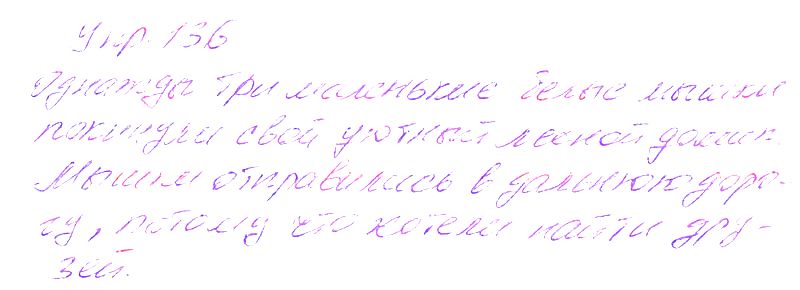 Упр. 136
Однажды три маленькие белые мышки
покинули свой уютный лесной домик.
Мышки отправились в дальнюю доро-
гу, потому что хотели найти дру-
зей.